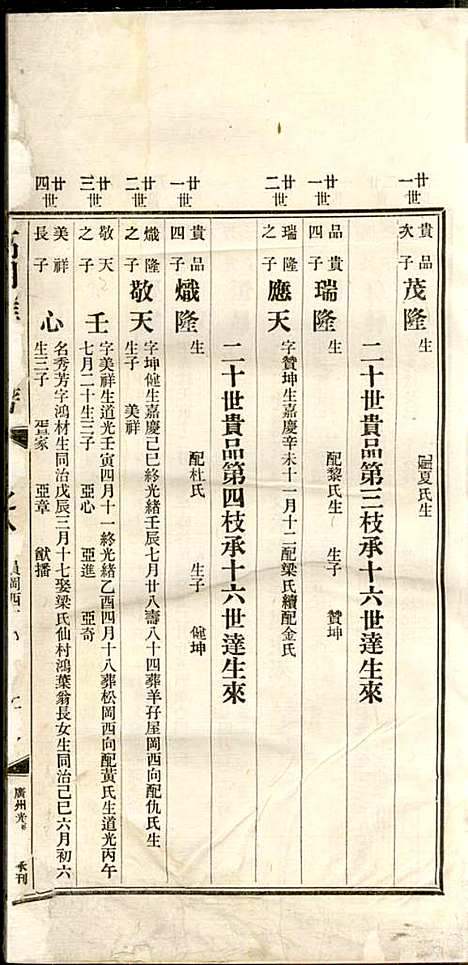 廿一世
貴品次子 茂隆 生 配夏氏生
二十世貴品第三枝承十六世達生來
廿一世
品貴四子 瑞隆 生 配黎氏生 生子 贊坤
廿二世
瑞隆之子 應天 字贊坤生嘉慶辛未十一月十二配梁氏續配金氏
二十世貴品第四枝承十六世達生來
廿一世
貴品四子 熾隆 生 配杜氏 生子 健坤
廿二世
熾隆之子 敬天 字坤健生嘉慶己巳終光緒壬辰七月廿八壽八十四葬羊孖屋岡西向配仇氏生
生子 美祥
廿三世
敬天之子 壬 字美祥生道光壬寅四月十一終光緒乙酉四月十八葬松岡西向配黃氏生道光丙午
七月二十生三子 亞心 亞進 亞奇
廿四世
美祥長子 心 名秀芳字鴻材生同治戊辰三月十七娶梁氏仙村鴻葉翁長女生同治己巳六月初六
生三子 家 亞章 猷播
廣州光 承刊